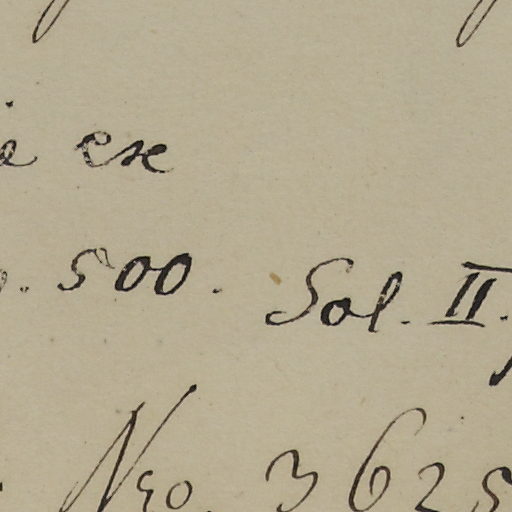 ex
500. Sol. II.
Nro. 3625